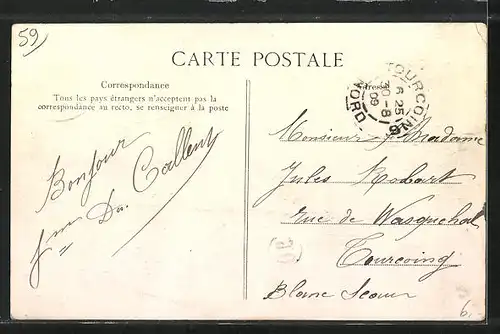 59
CARTE POSTALE
Correspondance
Tous les pays étrangers n'acceptent pas la
correspondance au recto, se renseigner à la poste
Bonjour
TOURCOING
6 25
30-8
09
NORD
Monsieur & Madame
Jules
Rue de Wasquehal
Tourcoing
Blanc Seau
6.